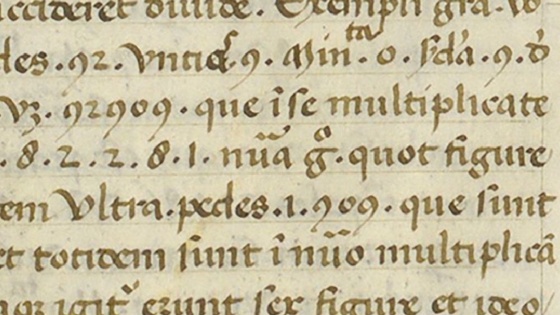 accideret diuide. Exempli gra. vo
des .92. vntie .9. Min.ta 0. scd̃a .9. d̃
vz. 92909. que ĩse multiplicate
. 8. 2. 2. 8. 1. nũa g̊. quot figure
em vltra .pedes .1. 909. que sunt
et totidem sunt ĩ nũo multiplicã
igit᷑ erunt sex figure et ideo